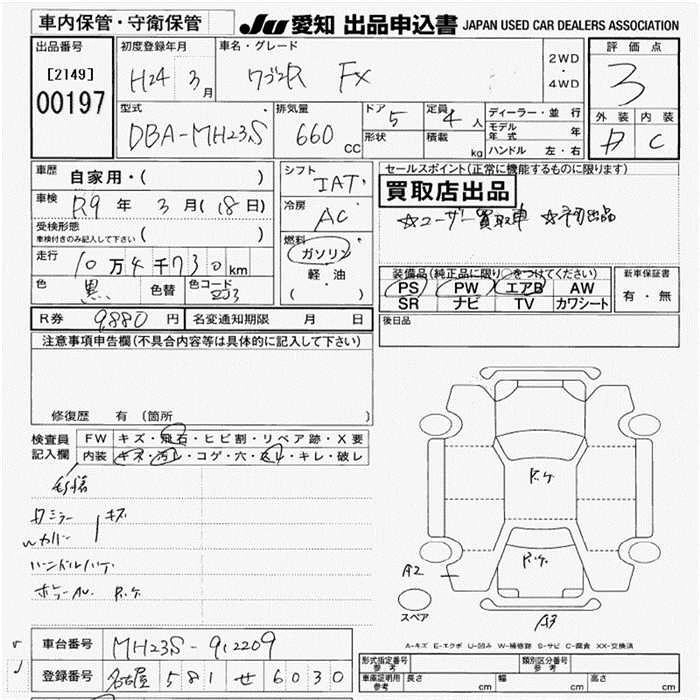 車内保管・守衛保管
JU 愛知 出品申込書 JAPAN USED CAR DEALERS ASSOCIATION
出品番号 [2149] 00197
初度登録年月 H24 3月
車名・グレード ワゴンR FX
2WD・4WD
評価点 3
外装 内装 C
型式 DBA-MH23S
排気量 660 cc
ドア 5
形状
定員 4人
積載 kg
ディーラー・並行
モデル年式 年
ハンドル 左・右
車歴 自家用・( )
車検 R9年 3月(18日)
受検形態 車検付きのみ記入して下さい ( )
走行 10万4千730km
色 黒 色替 色コード ZJ3
シフト IAT
冷房 AC
燃料 ガソリン 軽・油 ( )
セールスポイント(正常に機能するものに限ります)
買取店出品
☆ユーザー買取車 ☆初出品
装備品(純正品に限り○をつけてください)
PS PW エアB AW
SR ナビ TV カワシート
新車保証書 有・無
R券 9880円 名変通知期限 月 日
後日品
注意事項申告欄(不具合内容等は具体的に記入して下さい)
修復歴 有 (箇所
検査員記入欄
FW キズ・飛石・ヒビ割・リペア跡・X要
内装 キズ・汚レ・コゲ・穴・スレ・キレ・破レ
ミラー キズ
カバー
ハンドルハゲ
R.ケ.
R.ケ.
R.ケ.
A2
A3
スペア
A-キズ E-エクボ U-凹み W-補修跡 S-サビ C-腐食 XX-交換済
車台番号 MH23S-912209
登録番号 名古屋 581 せ 6030
形式指定番号 参考
類別区分番号 参考
車庫証明用 参考 長さ cm 幅 cm 高さ cm